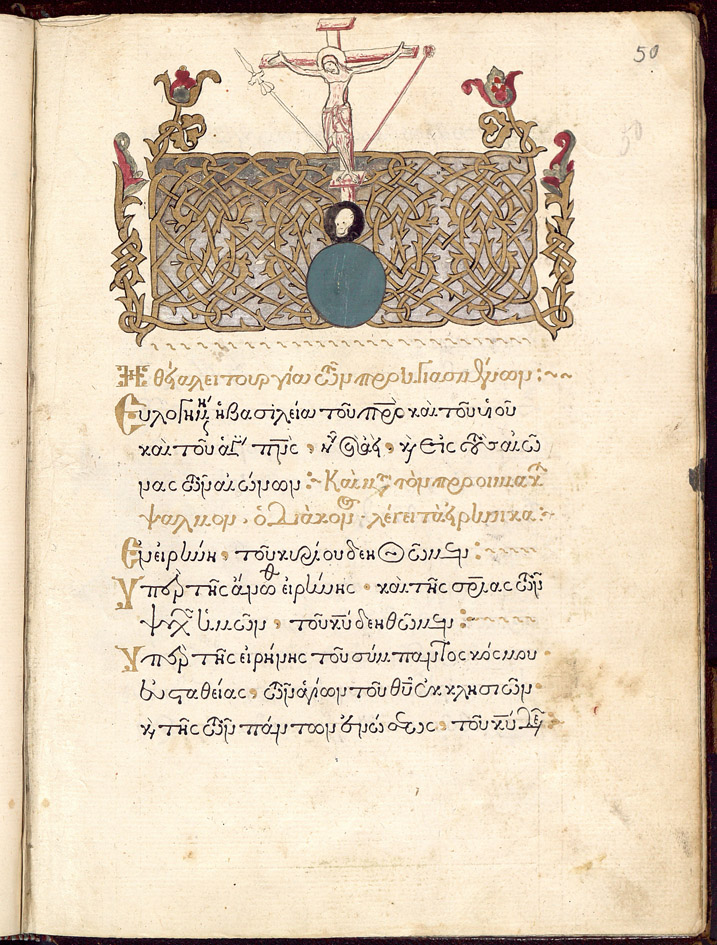 50
50
Ἡ θεία λειτουργία τῶν προηγιασμένων :~~
Εὐλογημένη ἡ βασιλεία τοῦ πρς καὶ τοῦ υἱοῦ
καὶ τοῦ ἁγίου πνς, νῦν καὶ ἀεὶ, καὶ εἰς τοὺς αἰῶ
νας τῶν αἰώνων :~ Καὶ μετὰ τὸν προοιμιακὸν
ψαλμὸν, ὁ διάκονος λέγει τὰ εἰρηνικά :~
Ἐν εἰρήνῃ, τοῦ κυρίου δεηθῶμεν :~
Ὑπὲρ τῆς ἄνωθεν εἰρήνης, καὶ τῆς σρίας τῶν
ψυχῶν ἡμῶν, τοῦ κυ δεηθῶμεν :~
Ὑπὲρ τῆς εἰρήνης τοῦ σύμπαντος κόσμου
εὐσταθείας, τῶν ἁγίων τοῦ θυ ἐκκλησιῶν
καὶ τῆς τῶν πάντων ἑνώσεως, τοῦ κυ δεη